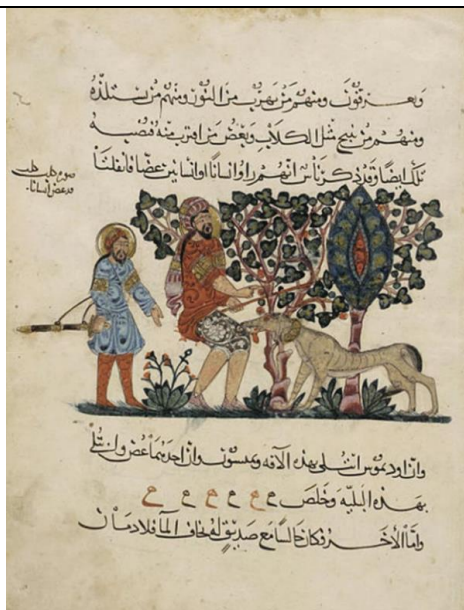 ويعرقون ومنهم من يهرب من النور ومنهم من يستلذه
ومنهم من ينبح مثل الكلاب وبعض من اقترب منه فيصيبه
ايضا وقد ذكر ناس انهم راوا انسانا او انسانين عضا فانفلتا
صورة كلب كلب
قد عض انسانا
وان اوديموس ابتلى بهذه الآفة وان احدهما عض وابتلى
بهذه البلية وخلص
واما الآخر فكان جالسا مع صديق له يخاف الما